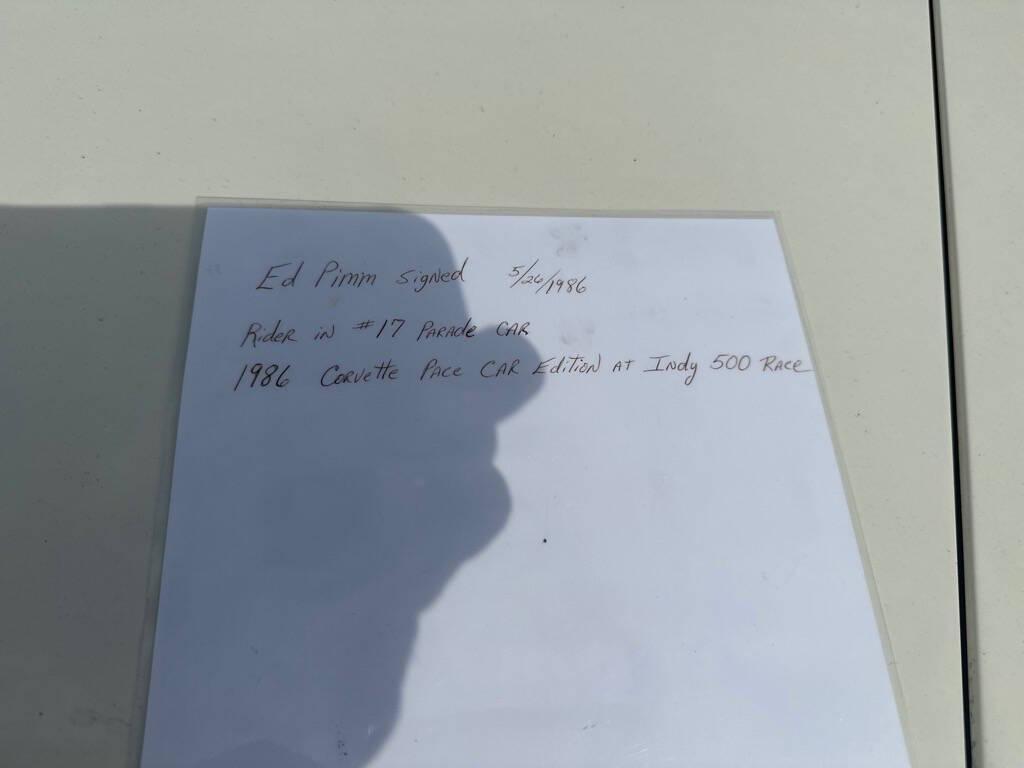 Ed Pimm signed 5/26/1986
Rider in #17 Parade Car
1986 Corvette Pace Car Edition at Indy 500 Race